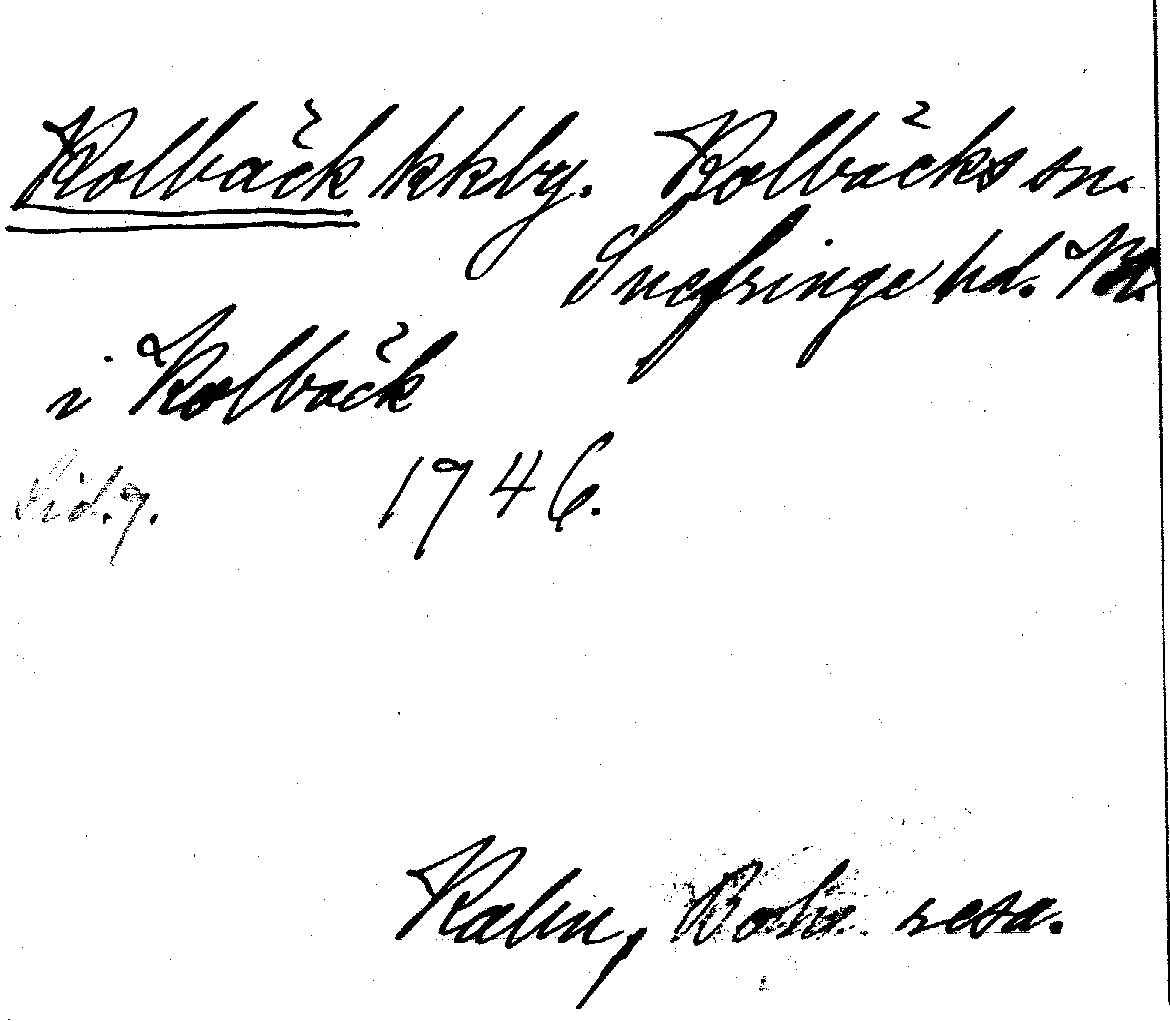 Kolbäck kkby. Kolbäcks sn.
Snefringe hd.
i Kolbäck
Sid. 9. 1746.
Kalm, Boh. resa.